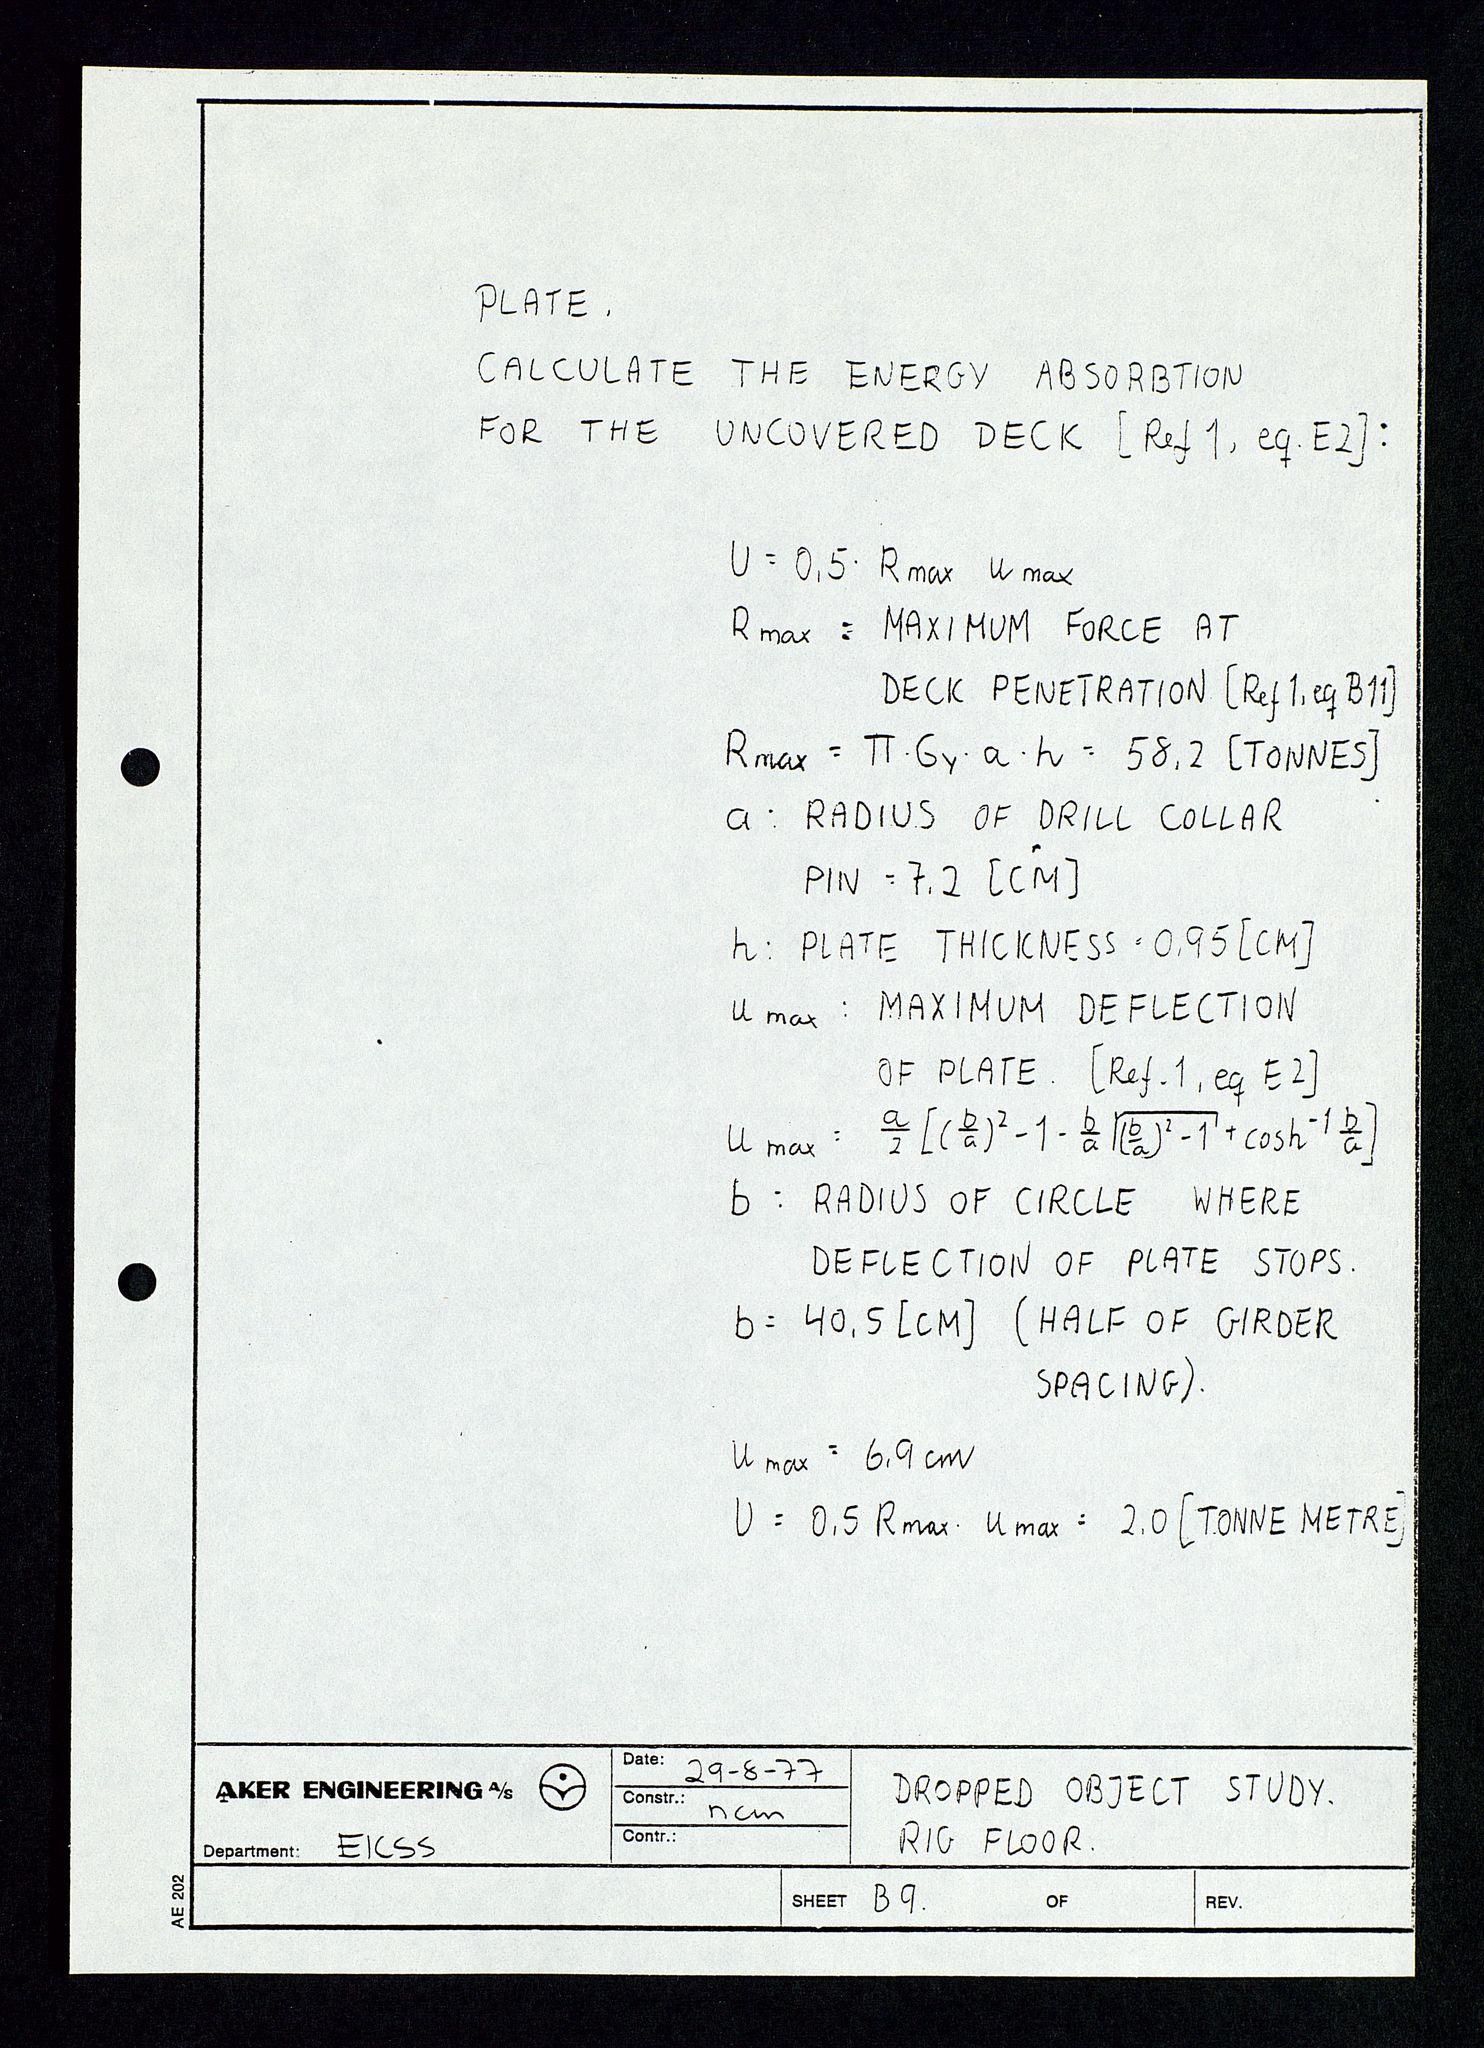 PLATE.
CALCULATE THE ENERGY ABSORBTION
FOR THE UNCOVERED DECK [Ref 1, eq. E2]:
U = 0,5 · Rmax umax
Rmax = MAXIMUM FORCE AT
DECK PENETRATION [Ref 1, eq B11]
Rmax = π · σy · a · h = 58,2 [TONNES]
a : RADIUS OF DRILL COLLAR
PIN = 7.2 [CM]
h : PLATE THICKNESS = 0,95 [CM]
umax : MAXIMUM DEFLECTION
OF PLATE. [Ref. 1, eq E2]
umax = a/2 [(b/a)² - 1 - b/a √((b/a)² - 1) + cosh⁻¹ b/a]
b : RADIUS OF CIRCLE WHERE
DEFLECTION OF PLATE STOPS.
b = 40,5 [CM] (HALF OF GIRDER
SPACING).
umax = 6,9 cm
U = 0,5 Rmax · umax = 2,0 [TONNE METRE]
AKER ENGINEERING A/S
Department: EKSS
Date: 29-8-77
Constr.: ncm
Contr.:
DROPPED OBJECT STUDY.
RIG FLOOR.
AE 202
SHEET B 9. OF
REV.